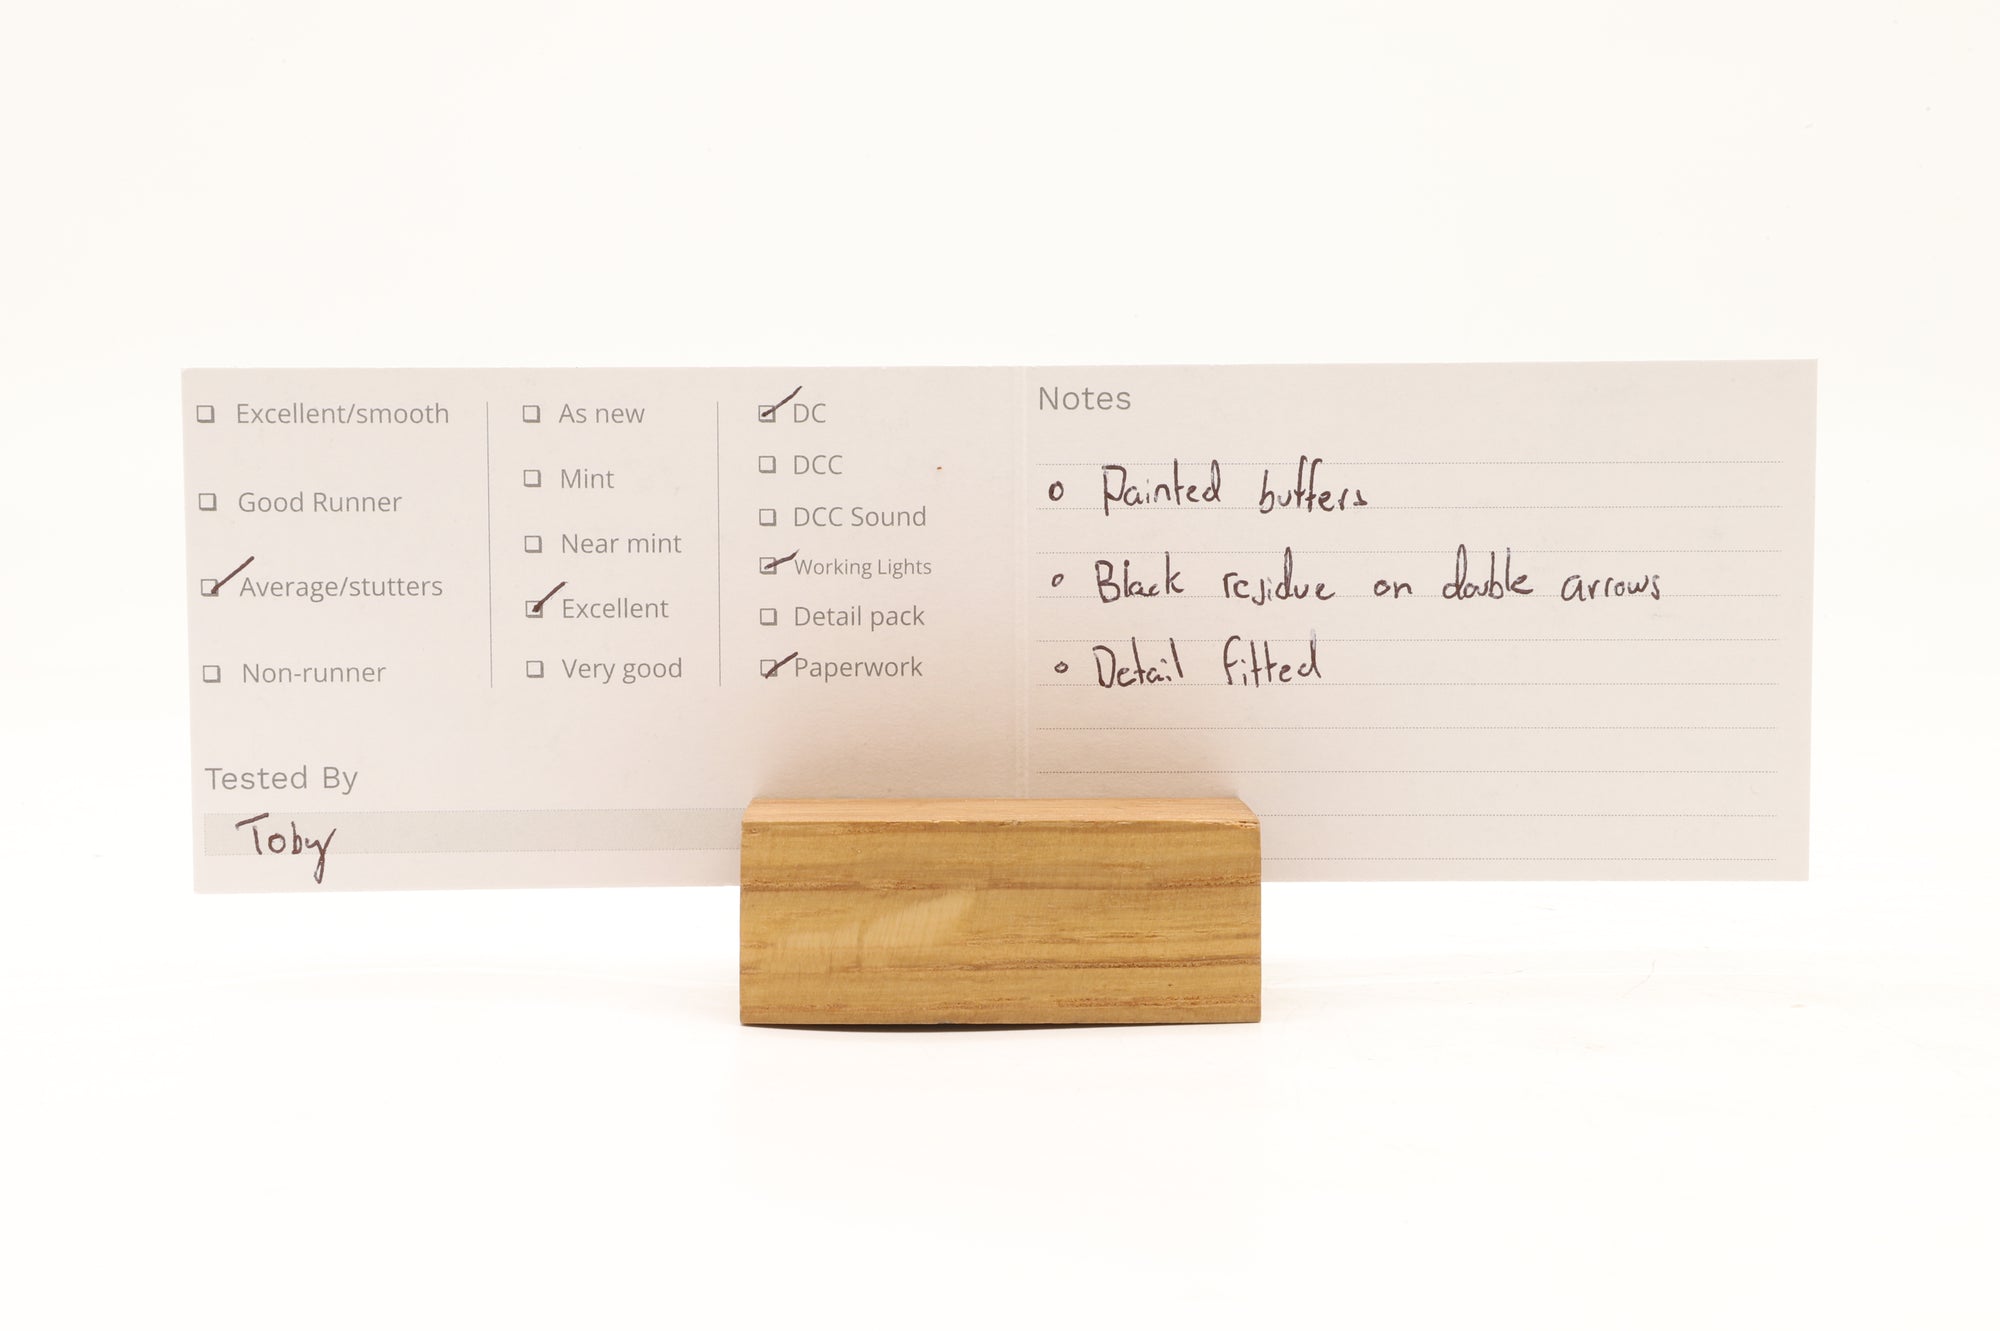 Excellent/smooth
Good Runner
Average/stutters
Non-runner
As new
Mint
Near mint
Excellent
Very good
DC
DCC
DCC Sound
Working Lights
Detail pack
Paperwork
Tested By
Toby
Notes
Painted buffers
Black residue on double arrows
Detail fitted